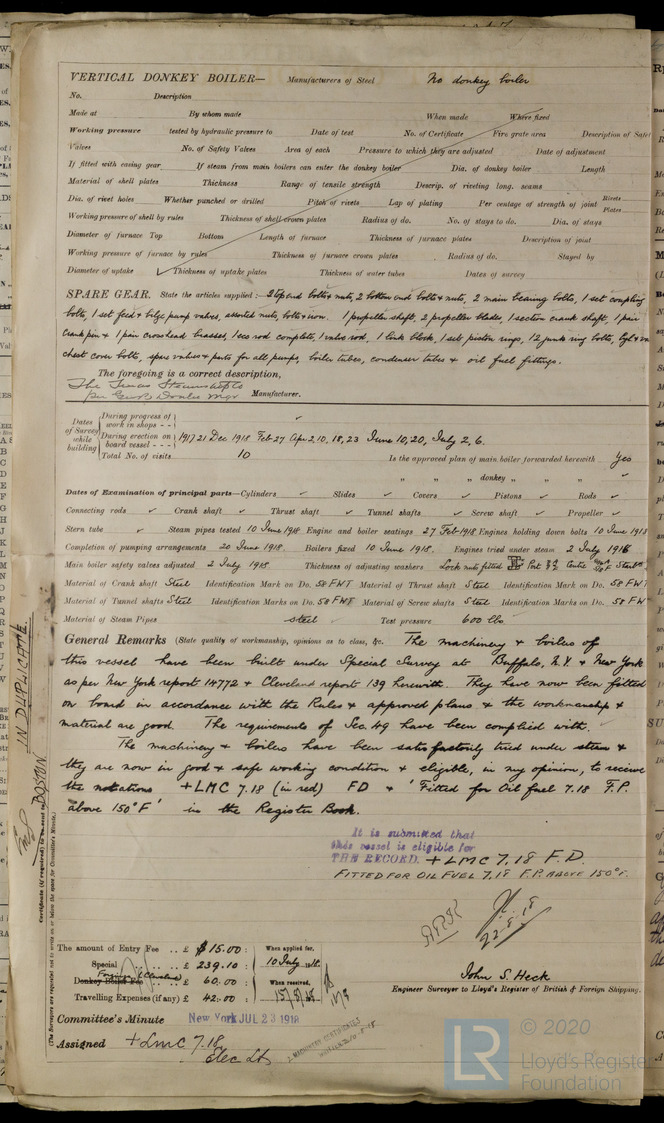 VERTICAL DONKEY BOILER— Manufacturers of Steel No donkey boiler
No. Description
Made at By whom made When made Where fixed
Working pressure tested by hydraulic pressure to Date of test No. of Certificate Fire grate area Description of Safety
Valves No. of Safety Valves Area of each Pressure to which they are adjusted Date of adjustment
If fitted with casing gear If steam from main boilers can enter the donkey boiler Dia. of donkey boiler Length
Material of shell plates Thickness Range of tensile strength Descrip. of riveting long. seams
Dia. of rivet holes Whether punched or drilled Pitch of rivets Lap of plating Per centage of strength of joint Rivets Plates
Working pressure of shell by rules Thickness of shell crown plates Radius of do. No. of stays to do. Dia. of stays
Diameter of furnace Top Bottom Length of furnace Thickness of furnace plates Description of joint
Working pressure of furnace by rules Thickness of furnace crown plates Radius of do. Stayed by
Diameter of uptake Thickness of uptake plates Thickness of water tubes Dates of survey
SPARE GEAR. State the articles supplied:— 2 top end bolts & nuts, 2 bottom end bolts & nuts, 2 main bearing bolts, 1 set coupling
bolts, 1 set feed & bilge pump valves, assorted nuts, bolts & iron. 1 propeller shaft, 2 propeller blades, 1 section crank shaft, 1 pair
crank pin & 1 pair crosshead brasses, 1 ecc rod complete, 1 valve rod, 1 link block, 1 set piston rings, 12 junk ring bolts,
chest cover bolts, spare valves & parts for all pumps, boiler tubes, condenser tubes & oil fuel fittings.
The foregoing is a correct description,
The Texas Steamship Co
per Manufacturer.
Dates of Survey while building
During progress of work in shops - -
During erection on board vessel - - - 1917 21 Dec 1918 Feb 27 Apr 2, 10, 18, 23 June 10, 20, July 2, 6.
Total No. of visits 10 Is the approved plan of main boiler forwarded herewith Yes
" " " donkey " " "
Dates of Examination of principal parts—Cylinders Slides Covers Pistons Rods
Connecting rods Crank shaft Thrust shaft Tunnel shafts Screw shaft Propeller
Stern tube Steam pipes tested 10 June 1918 Engine and boiler seatings 27 Feb 1918 Engines holding down bolts 10 June 1918
Completion of pumping arrangements 20 June 1918. Boilers fixed 10 June 1918. Engines tried under steam 2 July 1918
Main boiler safety valves adjusted 2 July 1918 Thickness of adjusting washers Lock nuts fitted
Material of Crank shaft Steel Identification Mark on Do. 58 FWT Material of Thrust shaft Steel Identification Mark on Do. 58 FWT
Material of Tunnel shafts Steel Identification Marks on Do. 58 FWT Material of Screw shafts Steel Identification Marks on Do. 58 FW
Material of Steam Pipes steel Test pressure 600 lbs
General Remarks (State quality of workmanship, opinions as to class, &c. The machinery & boilers of
this vessel have been built under Special Survey at Buffalo, N.Y. & New York
as per New York report 14772 & Cleveland report 139 herewith. They have now been fitted
on board in accordance with the Rules & approved plans & the workmanship &
material are good. The requirements of Sec. 49 have been complied with.
The machinery & boilers have been satisfactorily tried under steam &
they are now in good & safe working condition & eligible, in my opinion, to receive
the notations +LMC 7.18 (in red) FD & 'Fitted for Oil fuel 7.18 F.P.
above 150°F' in the Register Book.
It is submitted that
this vessel is eligible for
THE RECORD. +LMC 7.18 F.D.
FITTED FOR OIL FUEL 7.18 F.P. ABOVE 150°F.
22.8.18
The amount of Entry Fee .. £ $15.00 : When applied for,
Special .. £ 239.10 : 10 July 1918
Donkey Boiler Fee .. £ 60.00 : When received,
(Cleveland)
Travelling Expenses (if any) £ 42.00 :
John S. Heck
Engineer Surveyor to Lloyd's Register of British & Foreign Shipping.
Committee's Minute New York JUL 23 1918
Assigned +LMC 7.18
Elec Lt
IN DUPLICATE.
BOSTON
Certificate (if required) to be sent to
(The Surveyors are requested not to write on or below the space for Committee's Minute.)
LR
© 2020
Lloyd's Register
Foundation